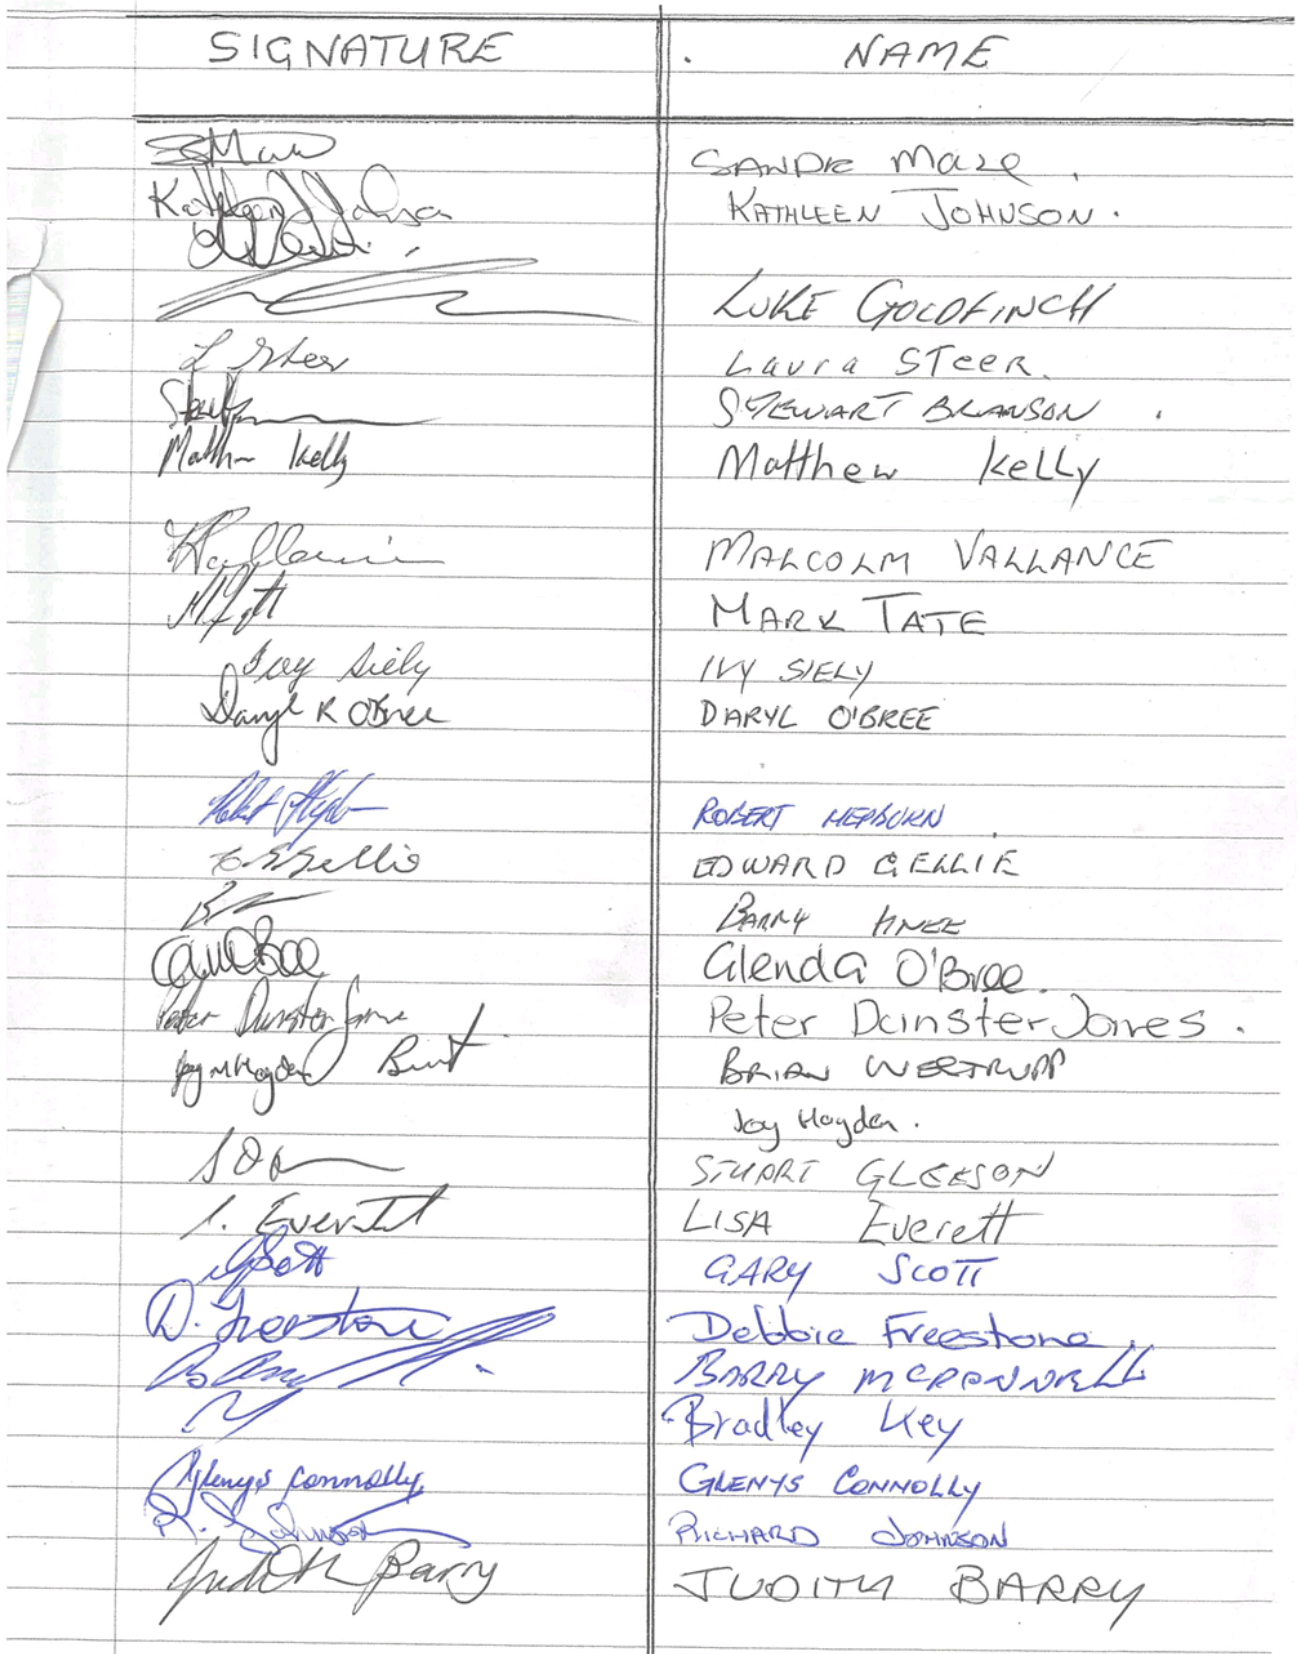 SIGNATURE NAME
SANDIE Maze
Kathleen Johnson KATHLEEN JOHNSON.
LUKE GOLDFINCH
L Steer Laura STeeR.
STEWART BRANSON
Matthew Kelly Matthew KeLLy
MALCOLM VALLANCE
MARK TATE
Ivy Siely IVY SIELY
Daryl R O'Bree DARYL O'BREE
Robert Hepburn ROBERT HEPBURN
E Gellie EDWARD GELLIE
BARRY KNEE
Glenda O'Bree.
Peter Dunster Jones Peter Dunster Jones.
BRIAN
Joy M Hayden Joy Hayden.
STUART GLEESON
L. Everett LISA Everett
GScott GARY SCOTT
D. Freestone Debbie Freestone
BARRY MCCONNELL
Bradley Key
Glenys Connolly GLENYS CONNOLLY
R. Johnson RICHARD JOHNSON
Judith Barry JUDITH BARRY